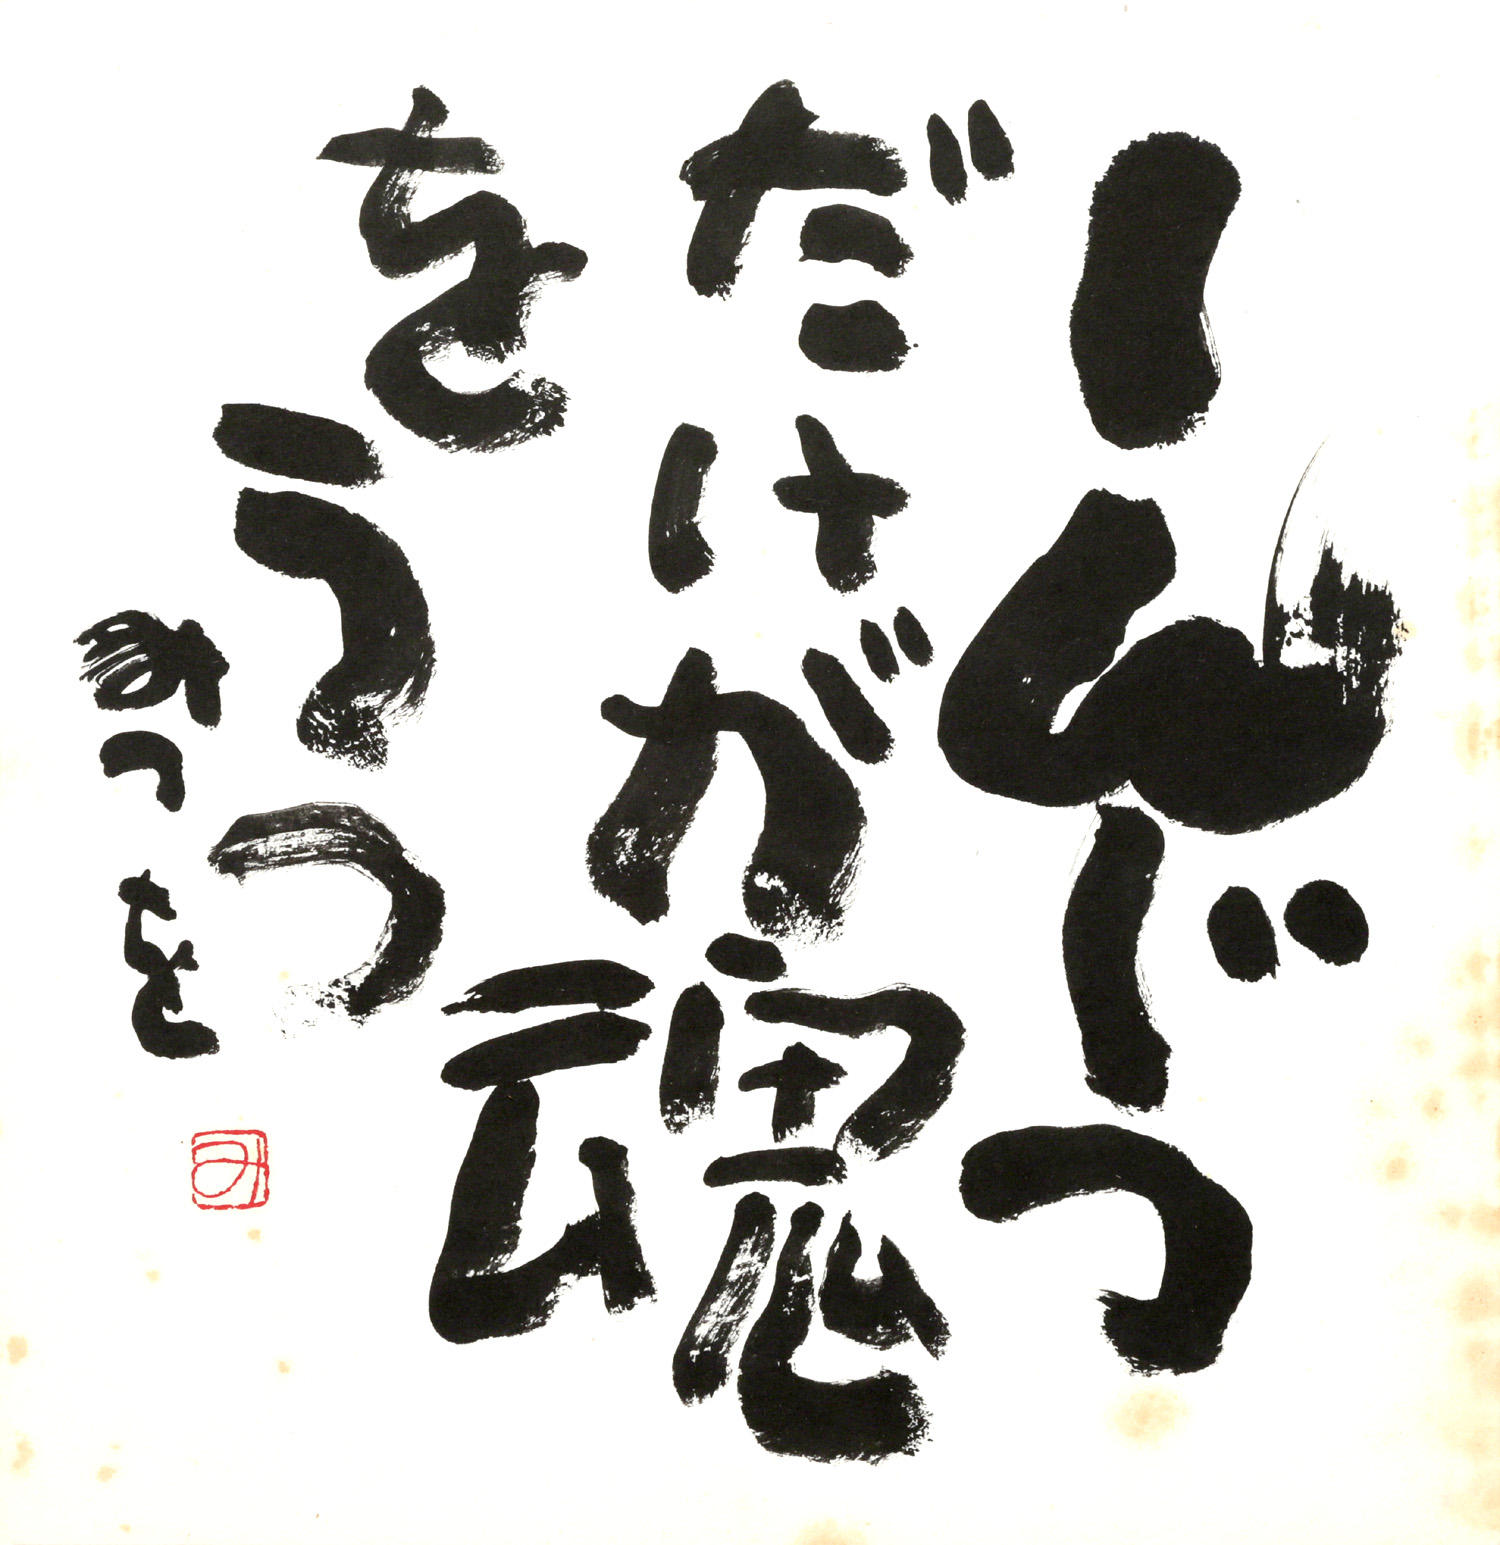 しんじつ
だけが魂
をうつ
みつを
み